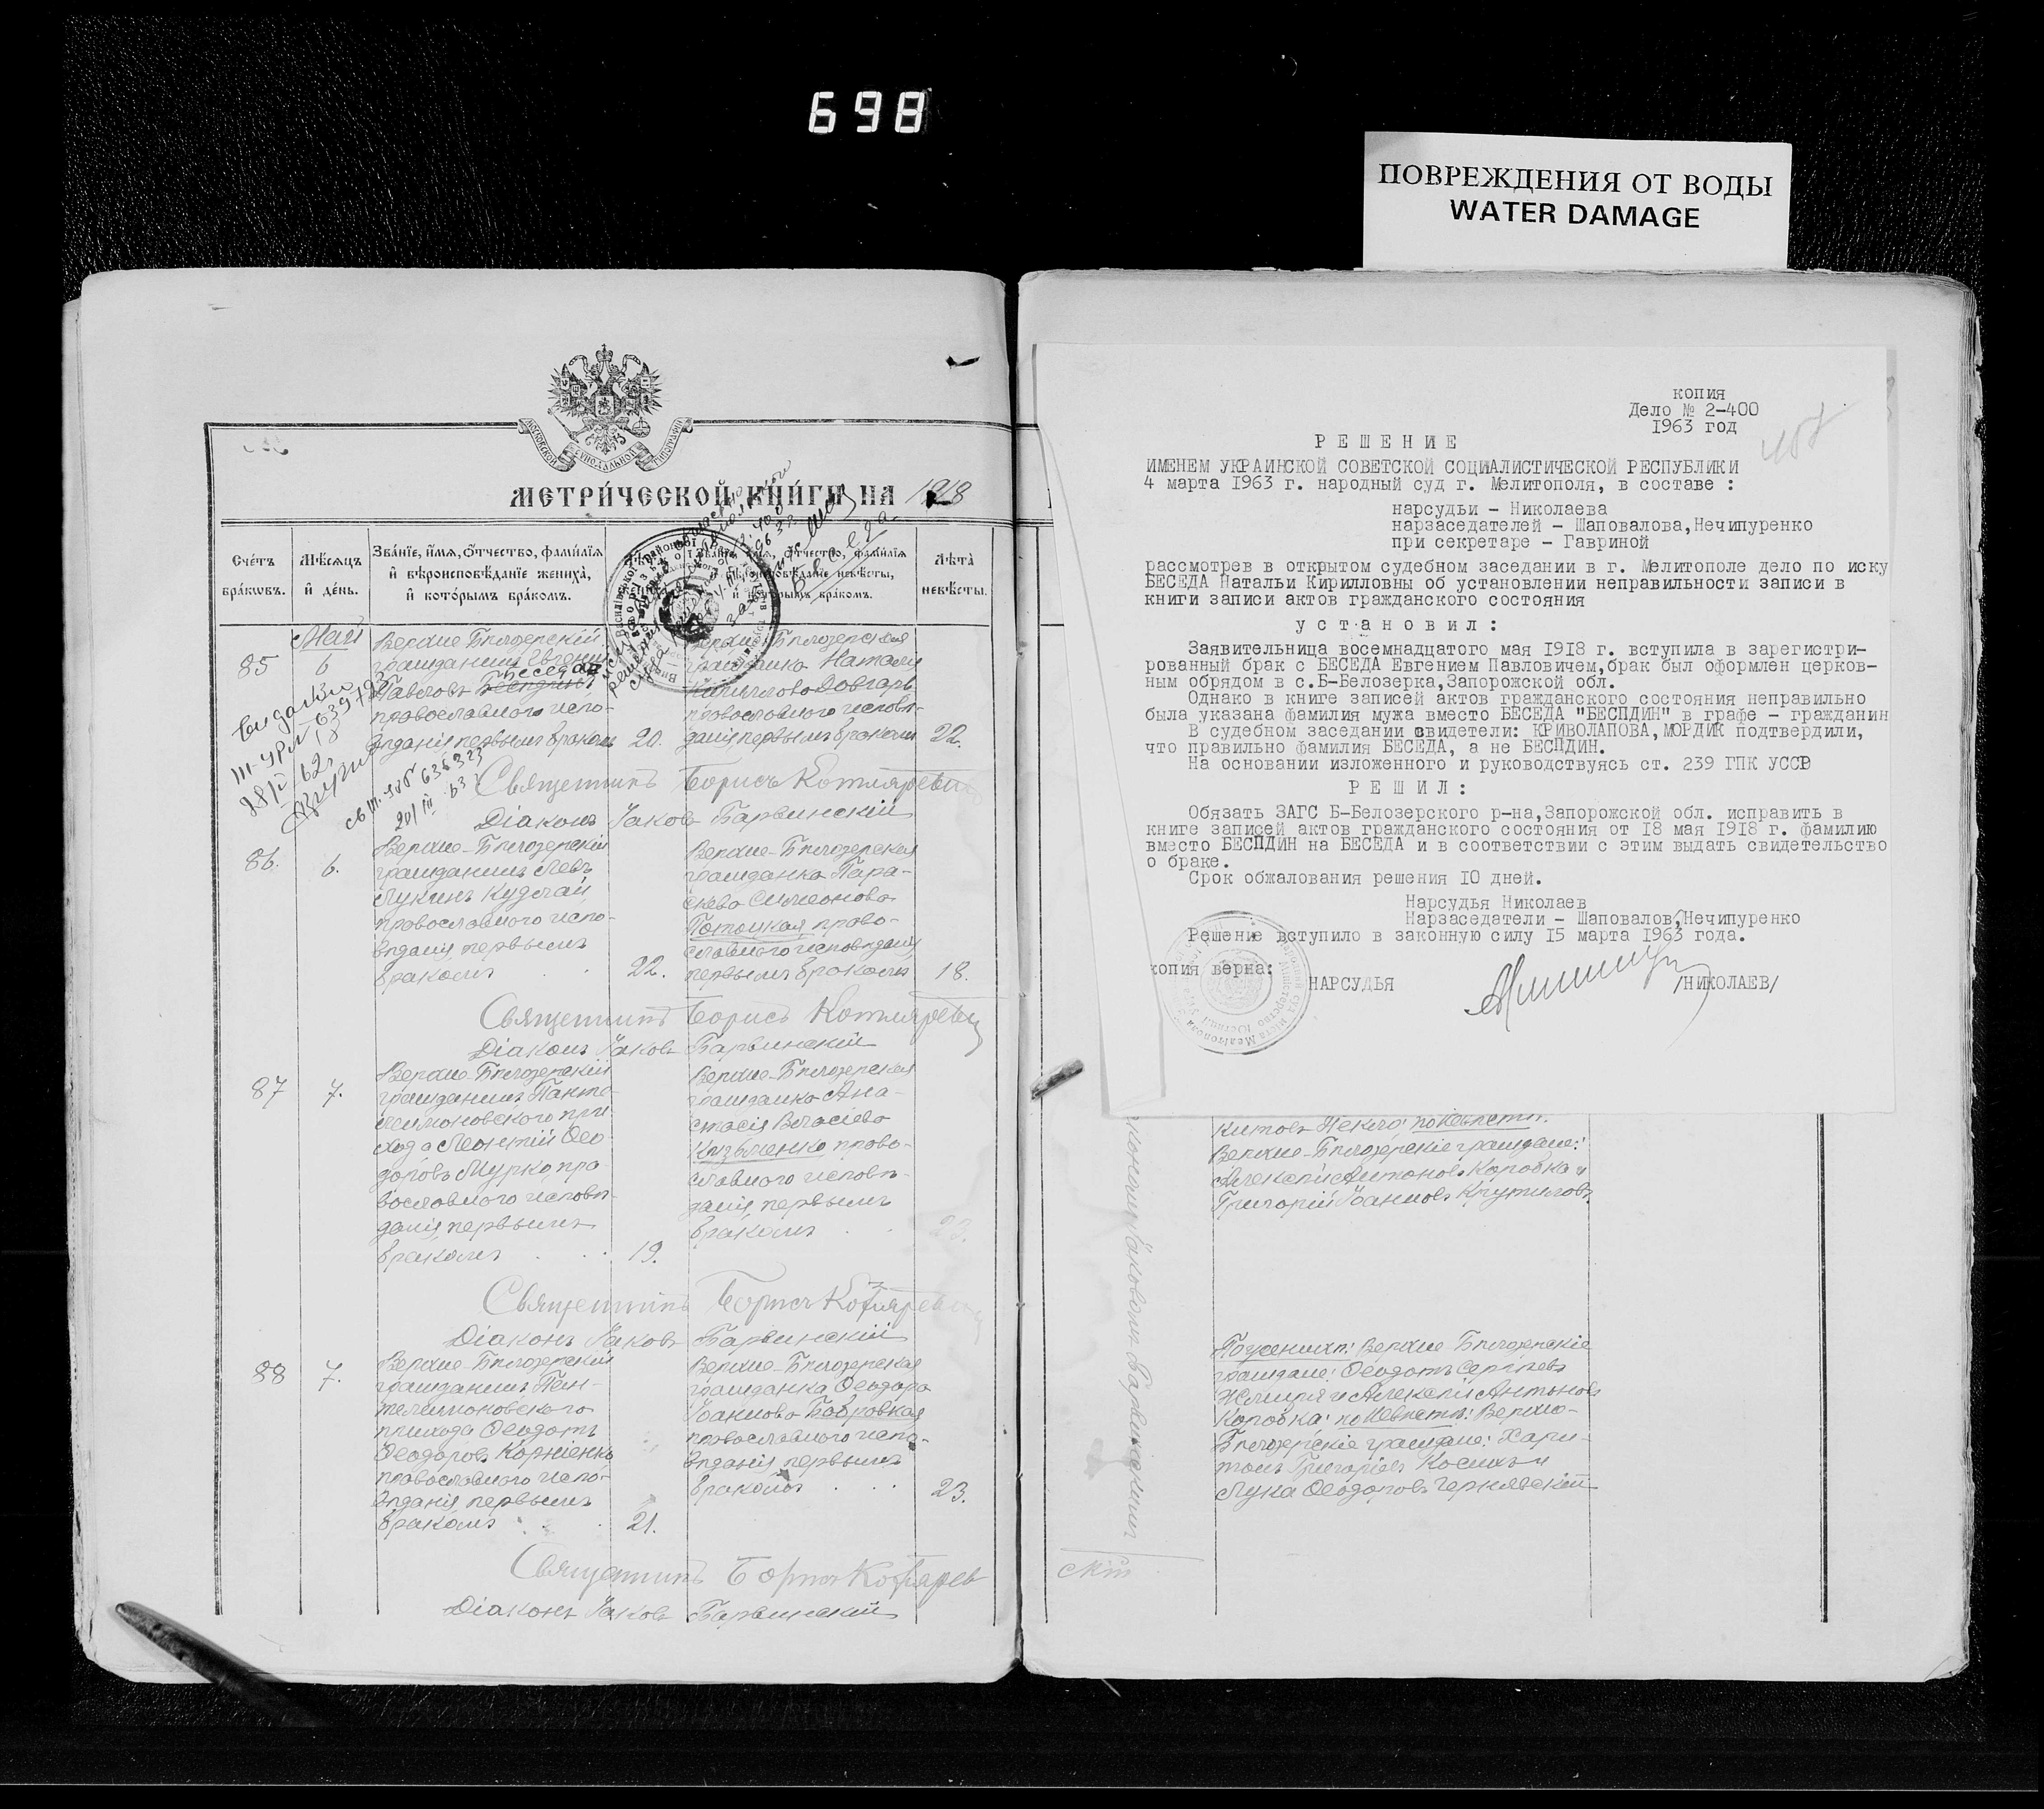 698
ПОВРЕЖДЕНИЯ ОТ ВОДЫ
WATER DAMAGE
МОСКОВСКОЙ СѴНОДАЛЬНОЙ ТИПОГРАФІИ
МЕТРИ́ЧЕСКОЙ КНИ́ГИ НА 1918
Сче́тъ бра́кωвъ.
Мѣ́сѧцъ и҆ де́нь.
Зва́нїе, и҆́мѧ, ѻ҆́тчество, фамы́лїѧ и҆ вѣроисповѣ́данїе жениха̀, и҆ кото́рымъ бра́комъ.
Лѣ́та невѣ́сты.
85
Май
6
Верхне-Бѣлозерскій
гражданинъ Евгеній
Беседа
Павловъ Беспдинъ
православнаго испо-
вѣданія, первымъ бракомъ
20.
Верхне-Бѣлозерская
гражданка Наталія
Кириллова Довгарь
православнаго исповѣ-
данія, первымъ бракомъ
22.
Священникъ Борисъ Котляревичъ
Діаконъ Іаковъ Барвинскій
86.
6.
Верхне-Бѣлозерскій
гражданинъ Левъ
Лукинъ Кудлай,
православнаго испо-
вѣданія, первымъ
бракомъ
22.
Верхне-Бѣлозерская
гражданка Пара-
скева Симеонова
Потоцкая, право-
славнаго исповѣданія,
первымъ бракомъ
18.
Священникъ Борисъ Котляревичъ
Діаконъ Іаковъ Барвинскій
87
7.
Верхне-Бѣлозерскій
гражданинъ Панте-
леимоновскаго при-
хода Леонтій Ѳео-
доровъ Мурко, пра-
вославнаго исповѣ-
данія, первымъ
бракомъ
19.
Верхне-Бѣлозерская
гражданка Ана-
стасія Власіева
Кузьменко право-
славнаго исповѣ-
данія, первымъ
бракомъ
23.
Священникъ Борисъ Котляревичъ
Діаконъ Іаковъ Барвинскій
88
7.
Верхне-Бѣлозерскій
гражданинъ Пан-
телеимоновскаго
прихода Ѳеодотъ
Ѳеодоровъ Корніенко
православнаго испо-
вѣданія, первымъ
бракомъ
21.
Верхне-Бѣлозерская
гражданка Ѳеодора
Іоаннова Бобровская
православнаго испо-
вѣданія первымъ
бракомъ
23.
Священникъ Борисъ Котлярев
Діаконъ Іаковъ Барвинскій
копия
Дело № 2-400
1963 год
Р Е Ш Е Н И Е
ИМЕНЕМ УКРАИНСКОЙ СОВЕТСКОЙ СОЦИАЛИСТИЧЕСКОЙ РЕСПУБЛИКИ
4 марта 1963 г. народный суд г. Мелитополя, в составе :
нарсудьи - Николаева
нарзаседателей - Шаповалова,Нечипуренко
при секретаре - Гавриной
рассмотрев в открытом судебном заседании в г. Мелитополе дело по иску
БЕСЕДА Натальи Кирилловны об установлении неправильности записи в
книги записи актов гражданского состояния
у с т а н о в и л :
Заявительница восемнадцатого мая 1918 г. вступила в зарегистри-
рованный брак с БЕСЕДА Евгением Павловичем,брак был оформлен церков-
ным обрядом в с.Б-Белозерка,Запорожской обл.
Однако в книге записей актов гражданского состояния неправильно
была указана фамилия мужа вместо БЕСЕДА "БЕСПДИН" в графе - гражданин
В судебном заседании свидетели: КРИВОЛАПОВА, МОРДИК подтвердили,
что правильно фамилия БЕСЕДА, а не БЕСПДИН.
На основании изложенного и руководствуясь ст. 239 ГПК УССР
Р Е Ш И Л :
Обязать ЗАГС Б-Белозерского р-на,Запорожской обл. исправить в
книге записей актов гражданского состояния от 18 мая 1918 г. фамилию
вместо БЕСПДИН на БЕСЕДА и в соответствии с этим выдать свидетельство
о браке.
Срок обжалования решения 10 дней.
Нарсудья Николаев
Нарзаседатели - Шаповалов,Нечипуренко
Решение вступило в законную силу 15 марта 1963 года.
копия верна:
НАРСУДЬЯ /НИКОЛАЕВ/
по невѣстѣ:
Верхне-Бѣлозерскіе граждане:
Алексѣй Антоновъ Коробка и
Григорій Іоанновъ Крутиловъ
По женихѣ: Верхне Бѣлозерскіе
граждане: Ѳеодотъ Сергѣевъ
и Алексѣй Антоновъ
Коробка; по невѣстѣ: Верхне-
Бѣлозерскіе граждане: Хари-
тонъ Григоріевъ Косихъ и
Лука Ѳеодоровъ Чернявскій